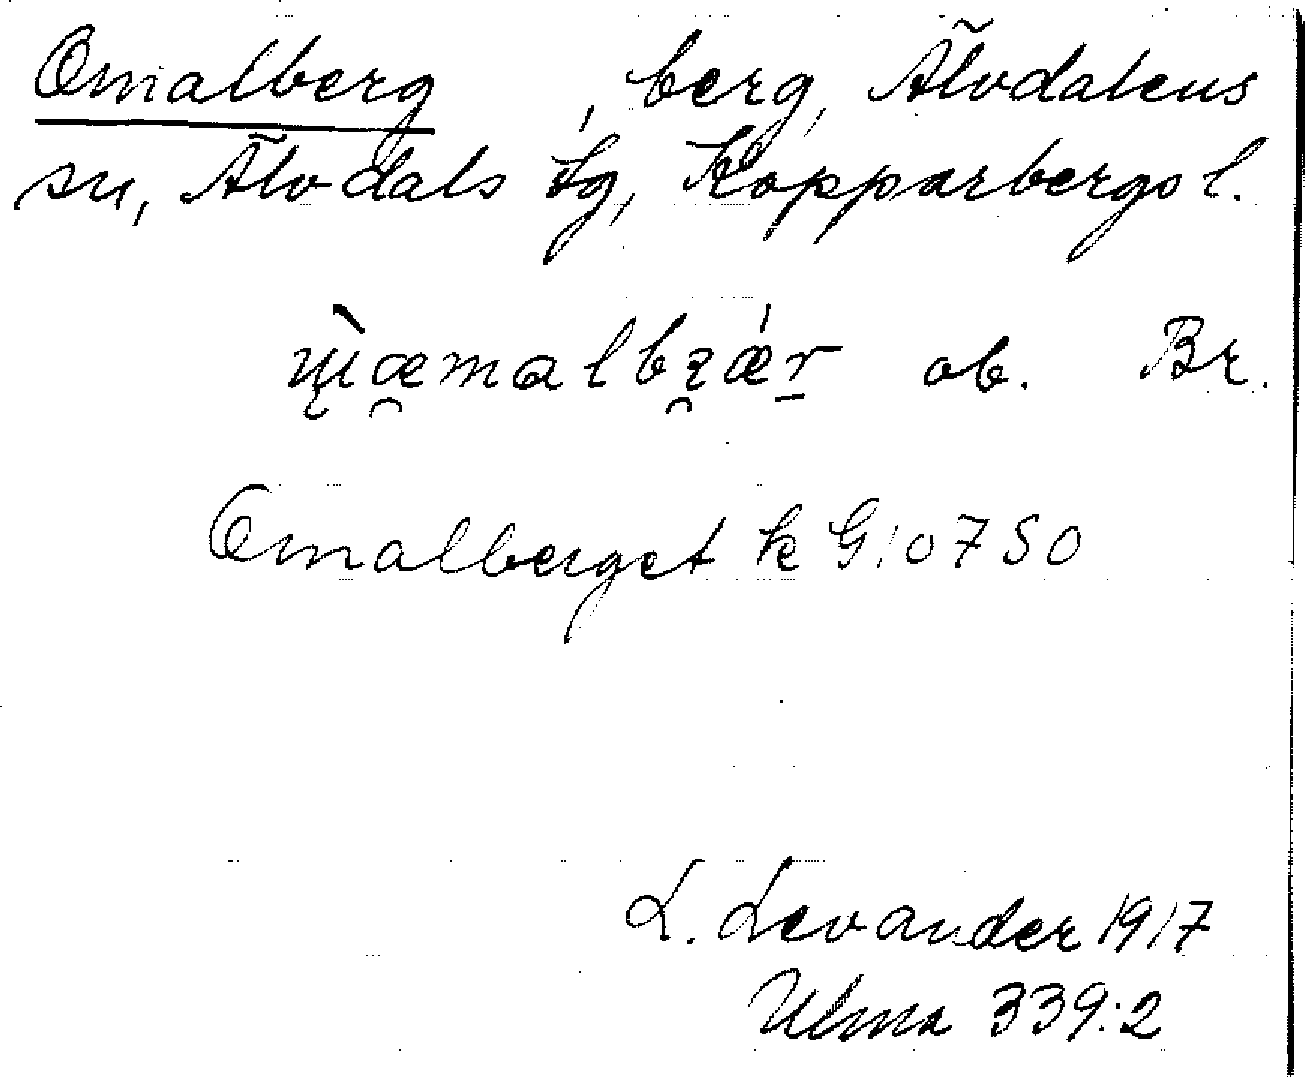 Omalberg , berg, Älvdalens
sn, Älvdals tg, Kopparbergs l.
ob. Br.
Omalberget k G:0750
L. Levander 1917
Ulma 339:2